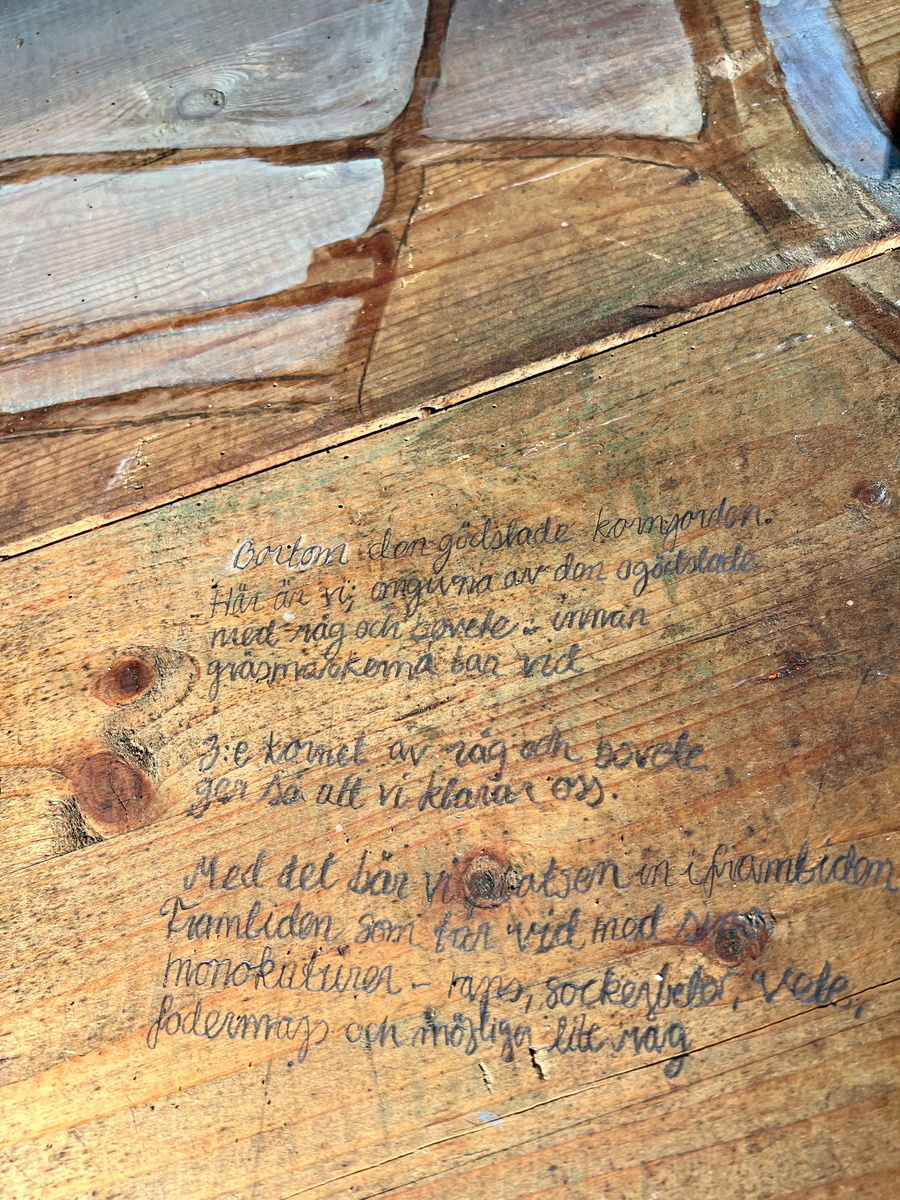 Bortom den gödslade kornjorden.
Här är vi, omgivna av den ogödslade
med råg och bovete - innan
gräsmarkerna tar vid
3:e kornet av råg och bovete
ger så att vi klarar oss.
Med det bär vi platsen in i framtiden
Framtiden som tar vid med sina
monokulturer - raps, sockerbetor, vete,
fodermajs och möjligen litt råg